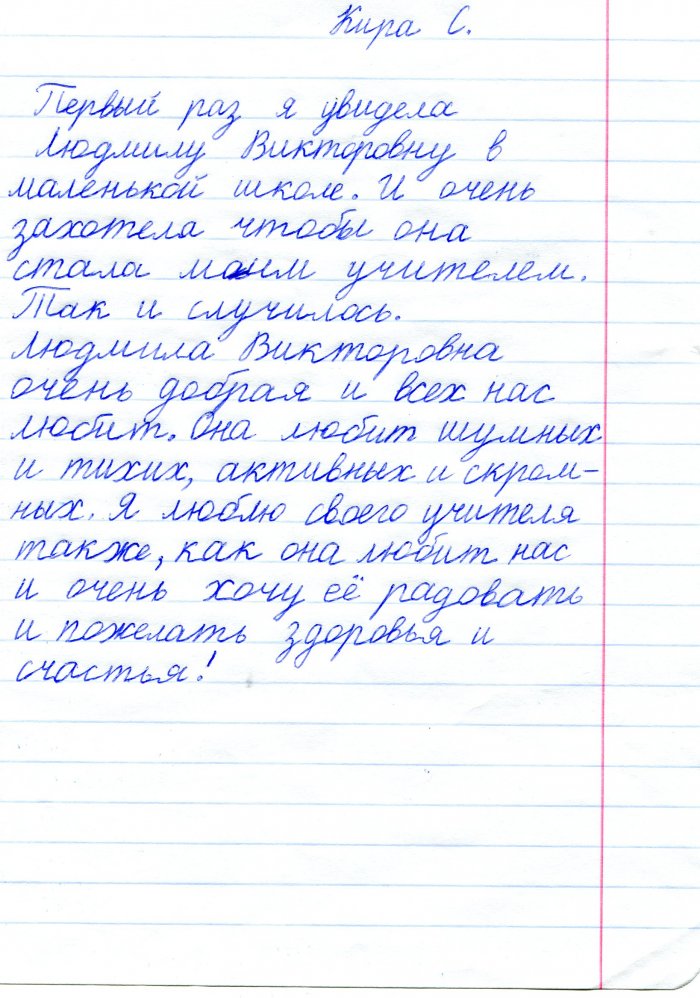 Кира С.
Первый раз я увидела
Людмилу Викторовну в
маленькой школе. И очень
захотела чтобы она
стала моим учителем.
Так и случилось.
Людмила Викторовна
очень добрая и всех нас
любит. Она любит шумных
и тихих, активных и скром-
ных. Я люблю своего учителя
также, как она любит нас
и очень хочу её радовать
и пожелать здоровья и
счастья!